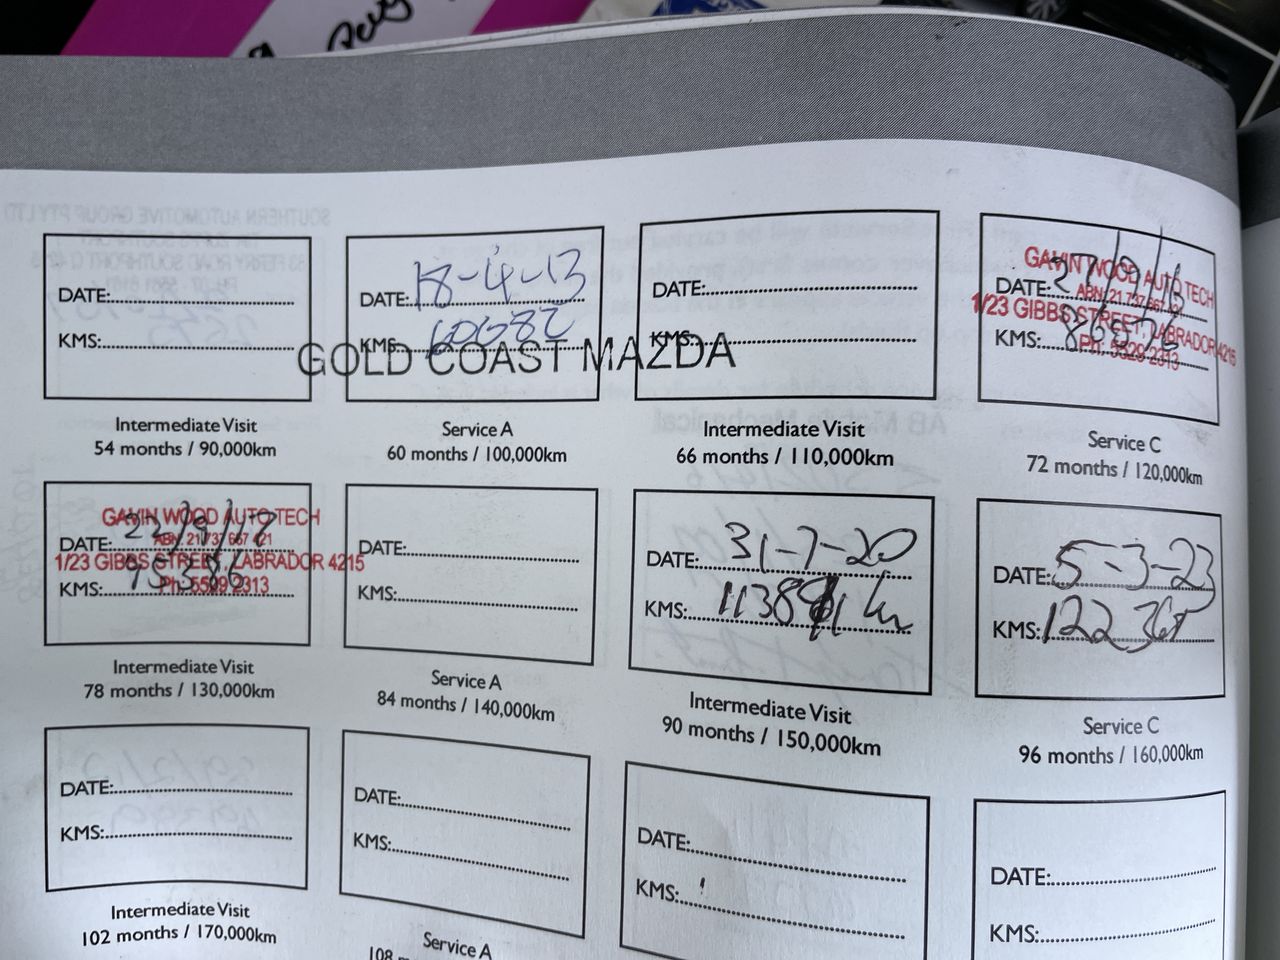 DATE:
KMS:
Intermediate Visit
54 months / 90,000km
DATE: 18-4-13
KMS:
GOLD COAST MAZDA
Service A
60 months / 100,000km
DATE:
KMS:
Intermediate Visit
66 months / 110,000km
GAVIN WOOD AUTO TECH
DATE:
ABN: 21 737 667 421
1/23 GIBBS STREET, LABRADOR 4215
KMS:
Ph: 5529 2313
Service C
72 months / 120,000km
GAVIN WOOD AUTO TECH
DATE: 22/9/17
ABN: 21 737 667 421
1/23 GIBBS STREET, LABRADOR 4215
KMS:
Ph: 5529 2313
Intermediate Visit
78 months / 130,000km
DATE:
KMS:
Service A
84 months / 140,000km
DATE: 31-7-20
KMS:
Intermediate Visit
90 months / 150,000km
DATE: 5-3-23
KMS: 122368
Service C
96 months / 160,000km
DATE:
KMS:
Intermediate Visit
102 months / 170,000km
DATE:
KMS:
Service A
108
DATE:
KMS:
DATE:
KMS: